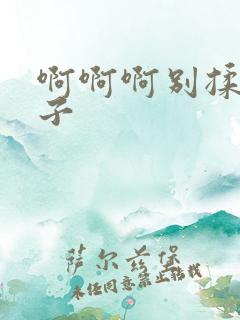 啊啊啊别揉
子
萨尔兹堡
未经同意禁止转载